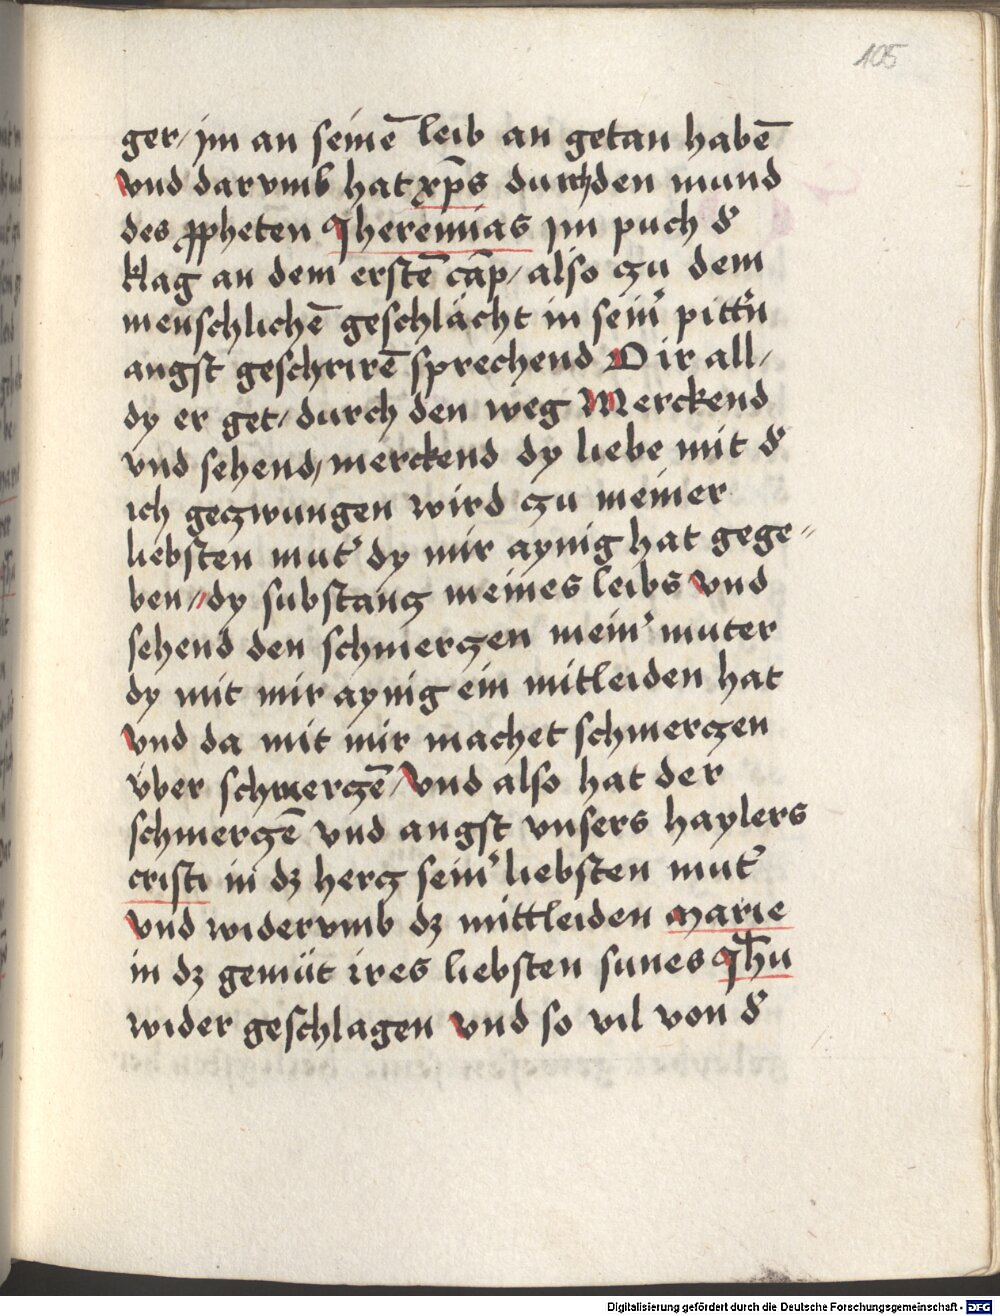 105
ger / jm an seinē leib an getan habē
vnd darvmb hat xp̄s durch den mund
des ꝓpheten Jheremias jm puch dʼ
klag an dem erstē cāp / also zu dem
menschlichē geschlächt in seinʼ pittʼn
angst geschrirē sprechend O ir all /
dy er get / durch den weg Merckend
vnd sehend / merckend dy liebe mit dʼ
ich gezwungen wird zu meiner
liebsten mutʼ dy mir aynig hat gege〃
ben // dy substanz meines leibs vnd
sehend den schmerzen meinʼ muter
dy mit mir aynig ein mitleiden hat
vnd da mit mir machet schmerzen
vber schmerzē / vnd also hat der
schmerzē vnd angst vnsers haylers
cristi in dz herz seinʼ liebsten mutʼ
vnd widervmb dz mittleiden marie
in dz gemüt ires liebsten sunes Jhū
wider geschlagen vnd so vil von dʼ
Digitalisierung gefördert durch die Deutsche Forschungsgemeinschaft - DFG